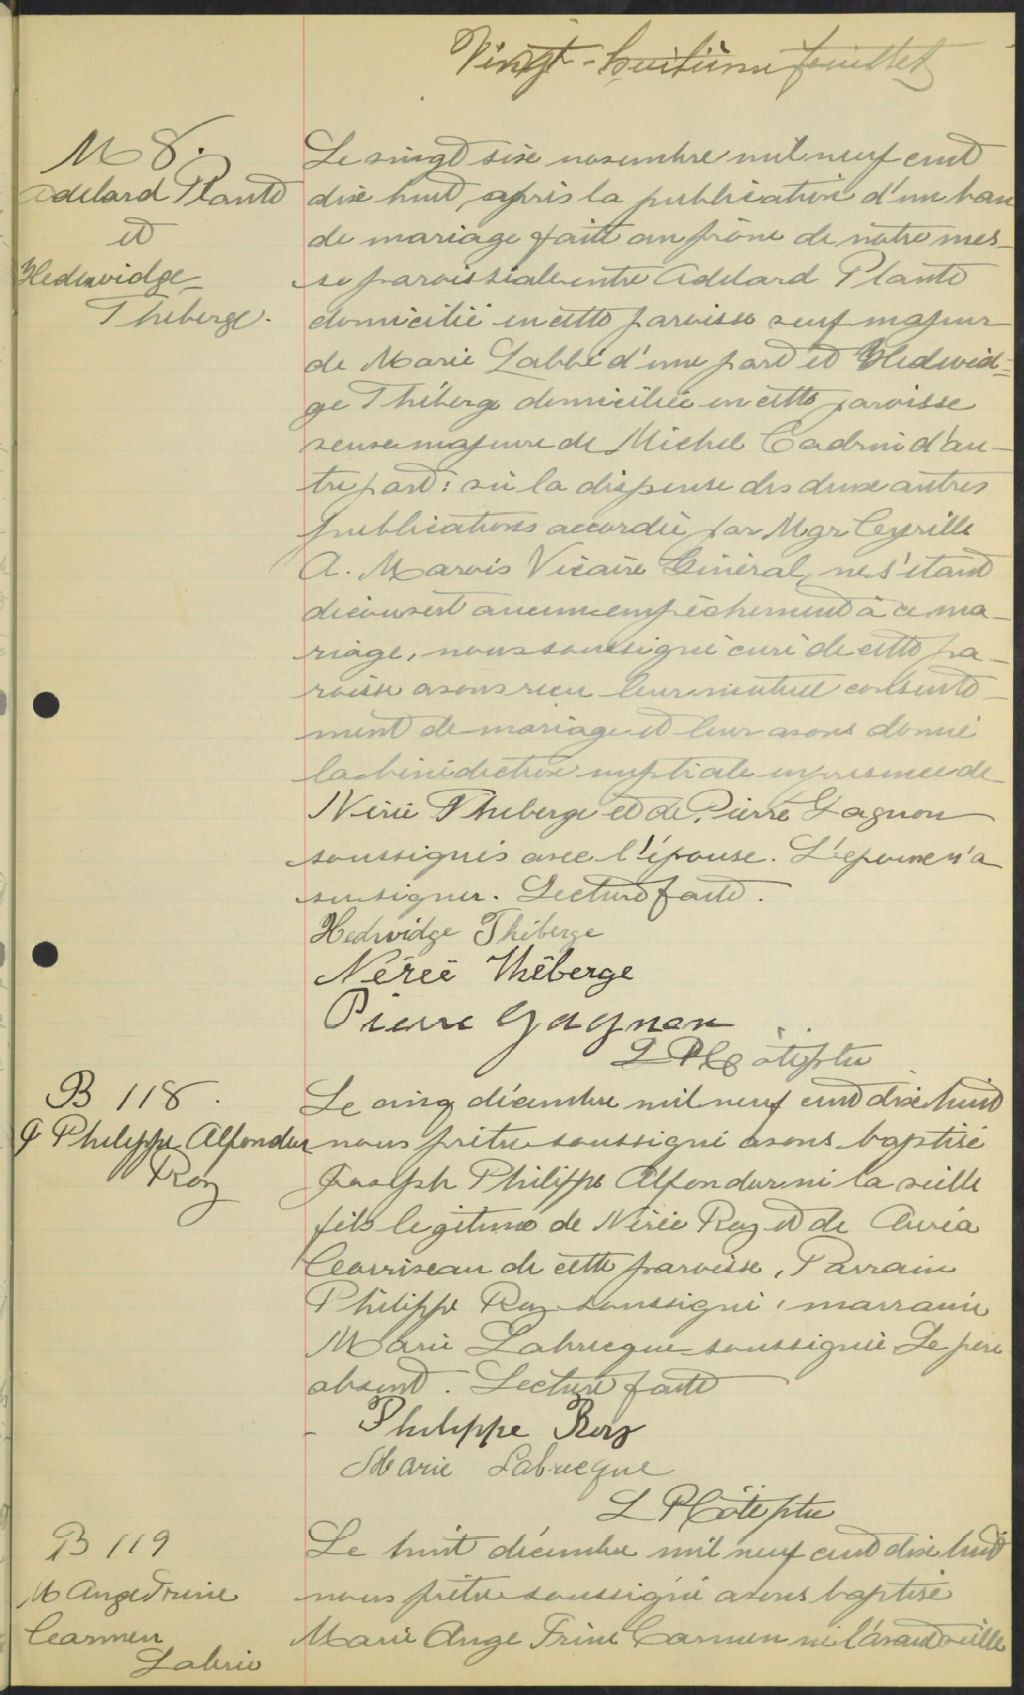 Vingt-huitième feuillet
M 8.
Adelard Plante
et
Hedwidge
Theberge.
Le vingt six novembre mil neuf cent
dix huit, après la publication d'un ban
de mariage faite au prône de notre mes-
se paroissiale entre Adelard Plante
domicilié en cette paroisse veuf majeur
de Marie Labbé d'une part et Hedwid=
ge Théberge domiciliée en cette paroisse
veuve majeure de Michel Cadrin d'au-
tre part: vu la dispense des deux autres
publications accordée par Mgr Cyrille
A. Marois Vicaire Général, ne s'étant
découvert aucun empêchement à ce ma-
riage, nous soussigné curé de cette pa-
roisse avons reçu leur mutuel consente-
ment de mariage et leur avons donné
la bénédiction nuptiale en présence de
Nérée Theberge et de Pierre Gagnon
soussignés avec l'épouse. L'époux n'a
su signer. Lecture faite.
Hedwidge Théberge
Nérée Théberge
Pierre Gagnon
L P Côté ptre
B 118.
J Philippe Alfondor
Roy
Le cinq décembre mil neuf cent dix huit
nous prêtre soussigné avons baptisé
Joseph Philippe Alfondor né la veille
fils legitime de Nérée Roy et de
Corriveau de cette paroisse, Parrain
Philippe Roy soussigné, marraine
Marie Labrecque soussignée Le père
absent. Lecture faite
Philippe Roy
Marie Labrecque
L P Côté ptre
B 119
M Ange
Carmen
Labrie
Le huit décembre mil neuf cent dix huit
nous prêtre soussigné avons baptisé
Marie Ange Carmen née l'avant veille